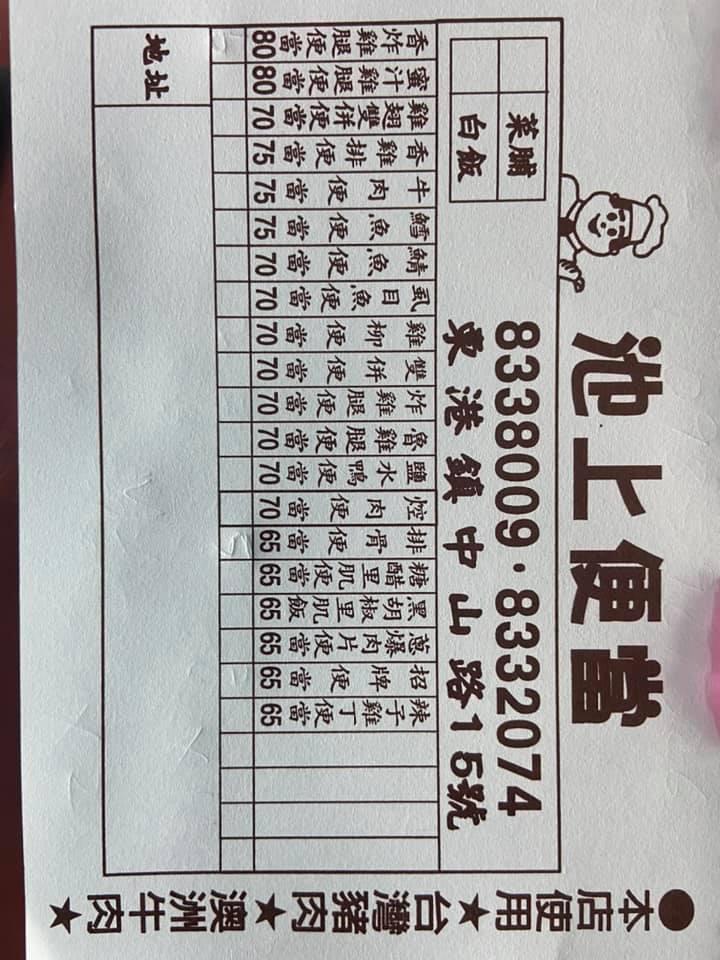 池上便當
8338009·8332074
東港鎮中山路15號
菜脯
白飯
香炸雞腿便當 80
蜜汁雞腿便當 80
雞翅雙併便當 70
香雞排便當 75
牛肉便當 75
鱈魚便當 75
鯖魚便當 70
虱目魚便當 70
雞柳便當 70
雙併便當 70
炸雞腿便當 70
魯雞腿便當 70
鹽水鴨便當 70
焢肉便當 70
排骨便當 65
糖醋里肌便當 65
黑胡椒里肌飯 65
蔥爆肉片便當 65
招牌便當 65
辣子雞丁便當 65
地址
●本店使用★台灣豬肉★澳洲牛肉★